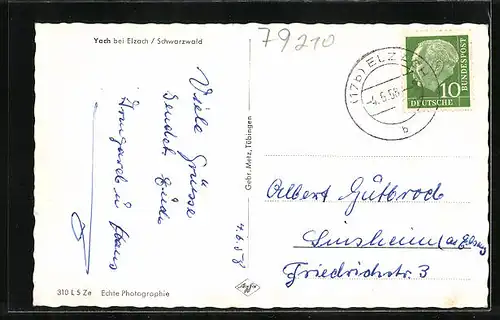 79210
Yach bei Elzach / Schwarzwald
(17b) ELZACH
-4.6.58
b
10
DEUTSCHE
BUNDESPOST
Viele Grüsse
sendet Euch
Irmgard u Hans
4.6.58
Gebr. Metz, Tübingen
Albert Gutbrod
Sinsheim
Friedrichstr. 3
310 L 5 Ze Echte Photographie
Agfa